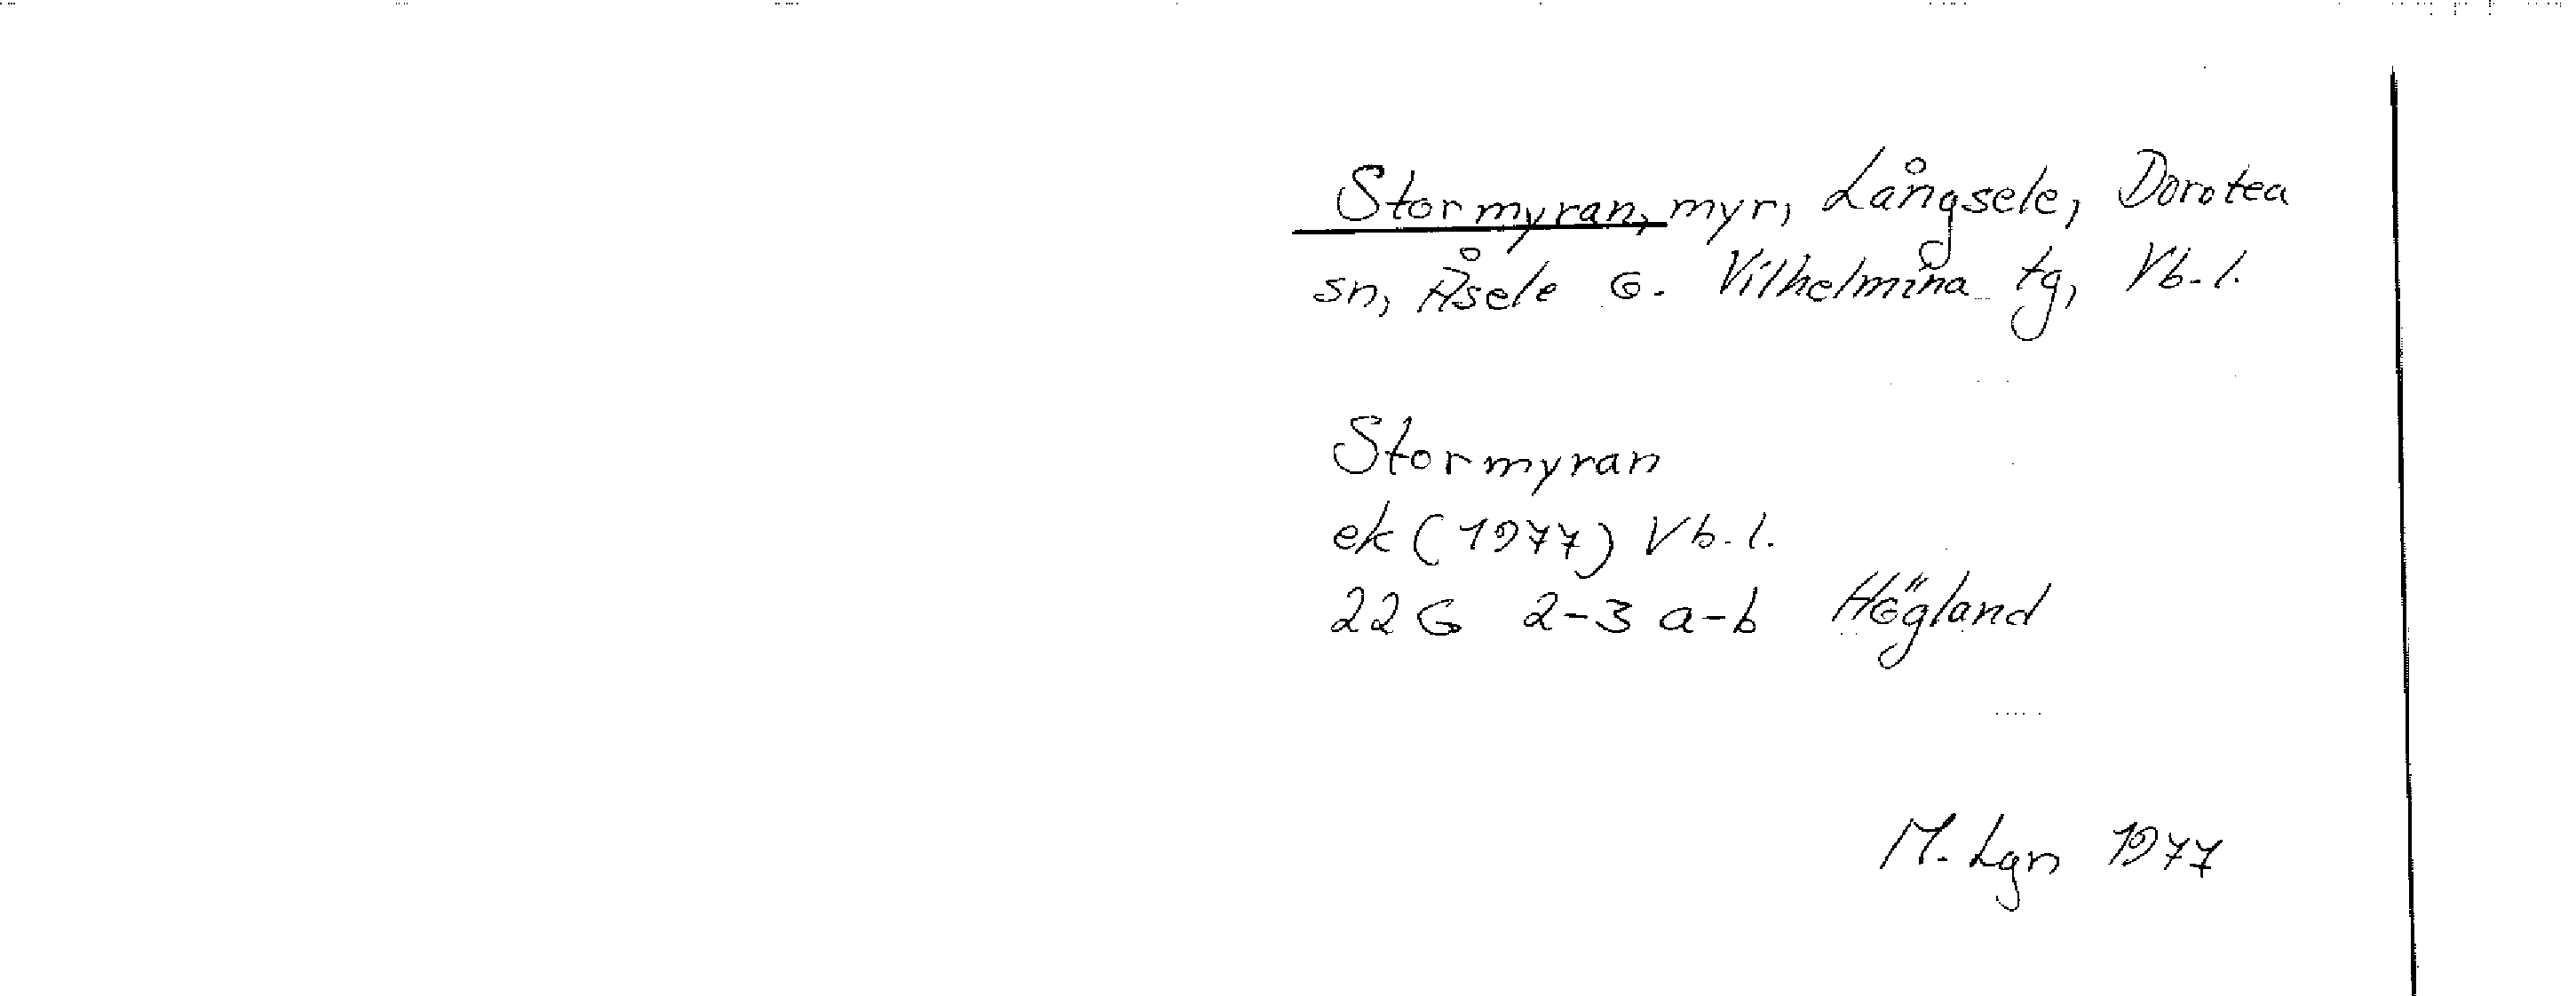 Stormyran, myr, Långsele, Dorotea
sn, Åsele o. Vilhelmina tg, Vb. l.
Stormyran
ek (1977) Vb. l.
22 G 2-3 a-b Högland
M. Lgn 1977